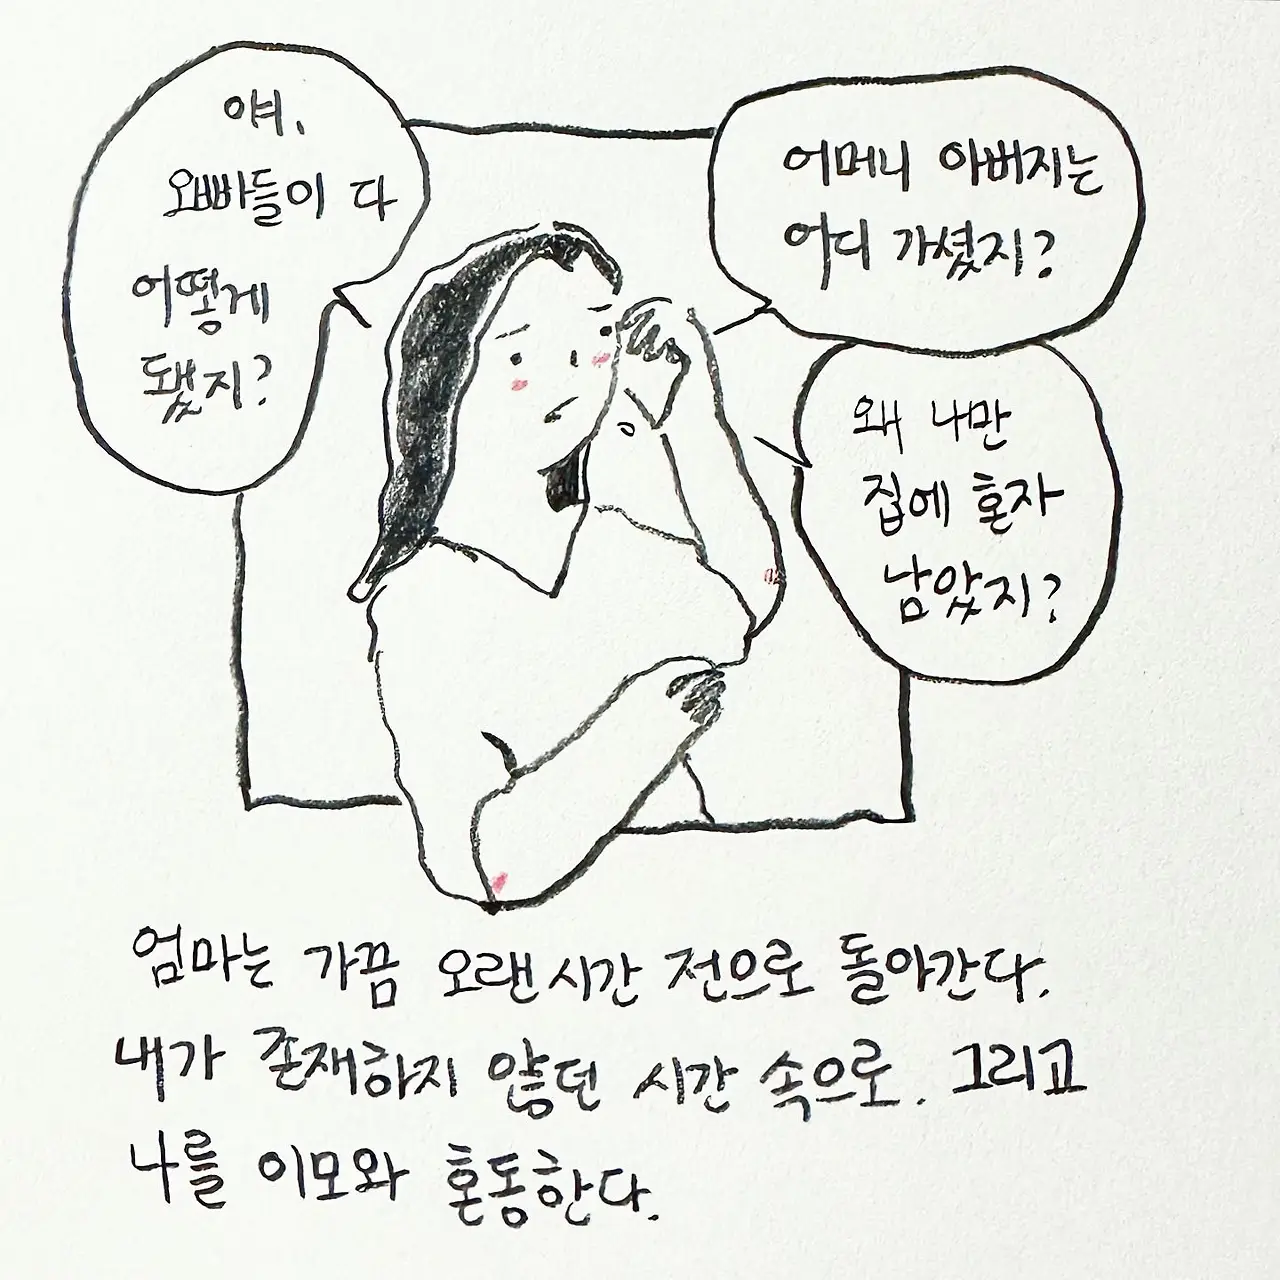 얘.
오빠들이 다
어떻게
됐지?
어머니 아버지는
어디 가셨지?
왜 나만
집에 혼자
남았지?
엄마는 가끔 오랜시간 전으로 돌아간다.
내가 존재하지 않던 시간 속으로. 그리고
나를 이모와 혼동한다.